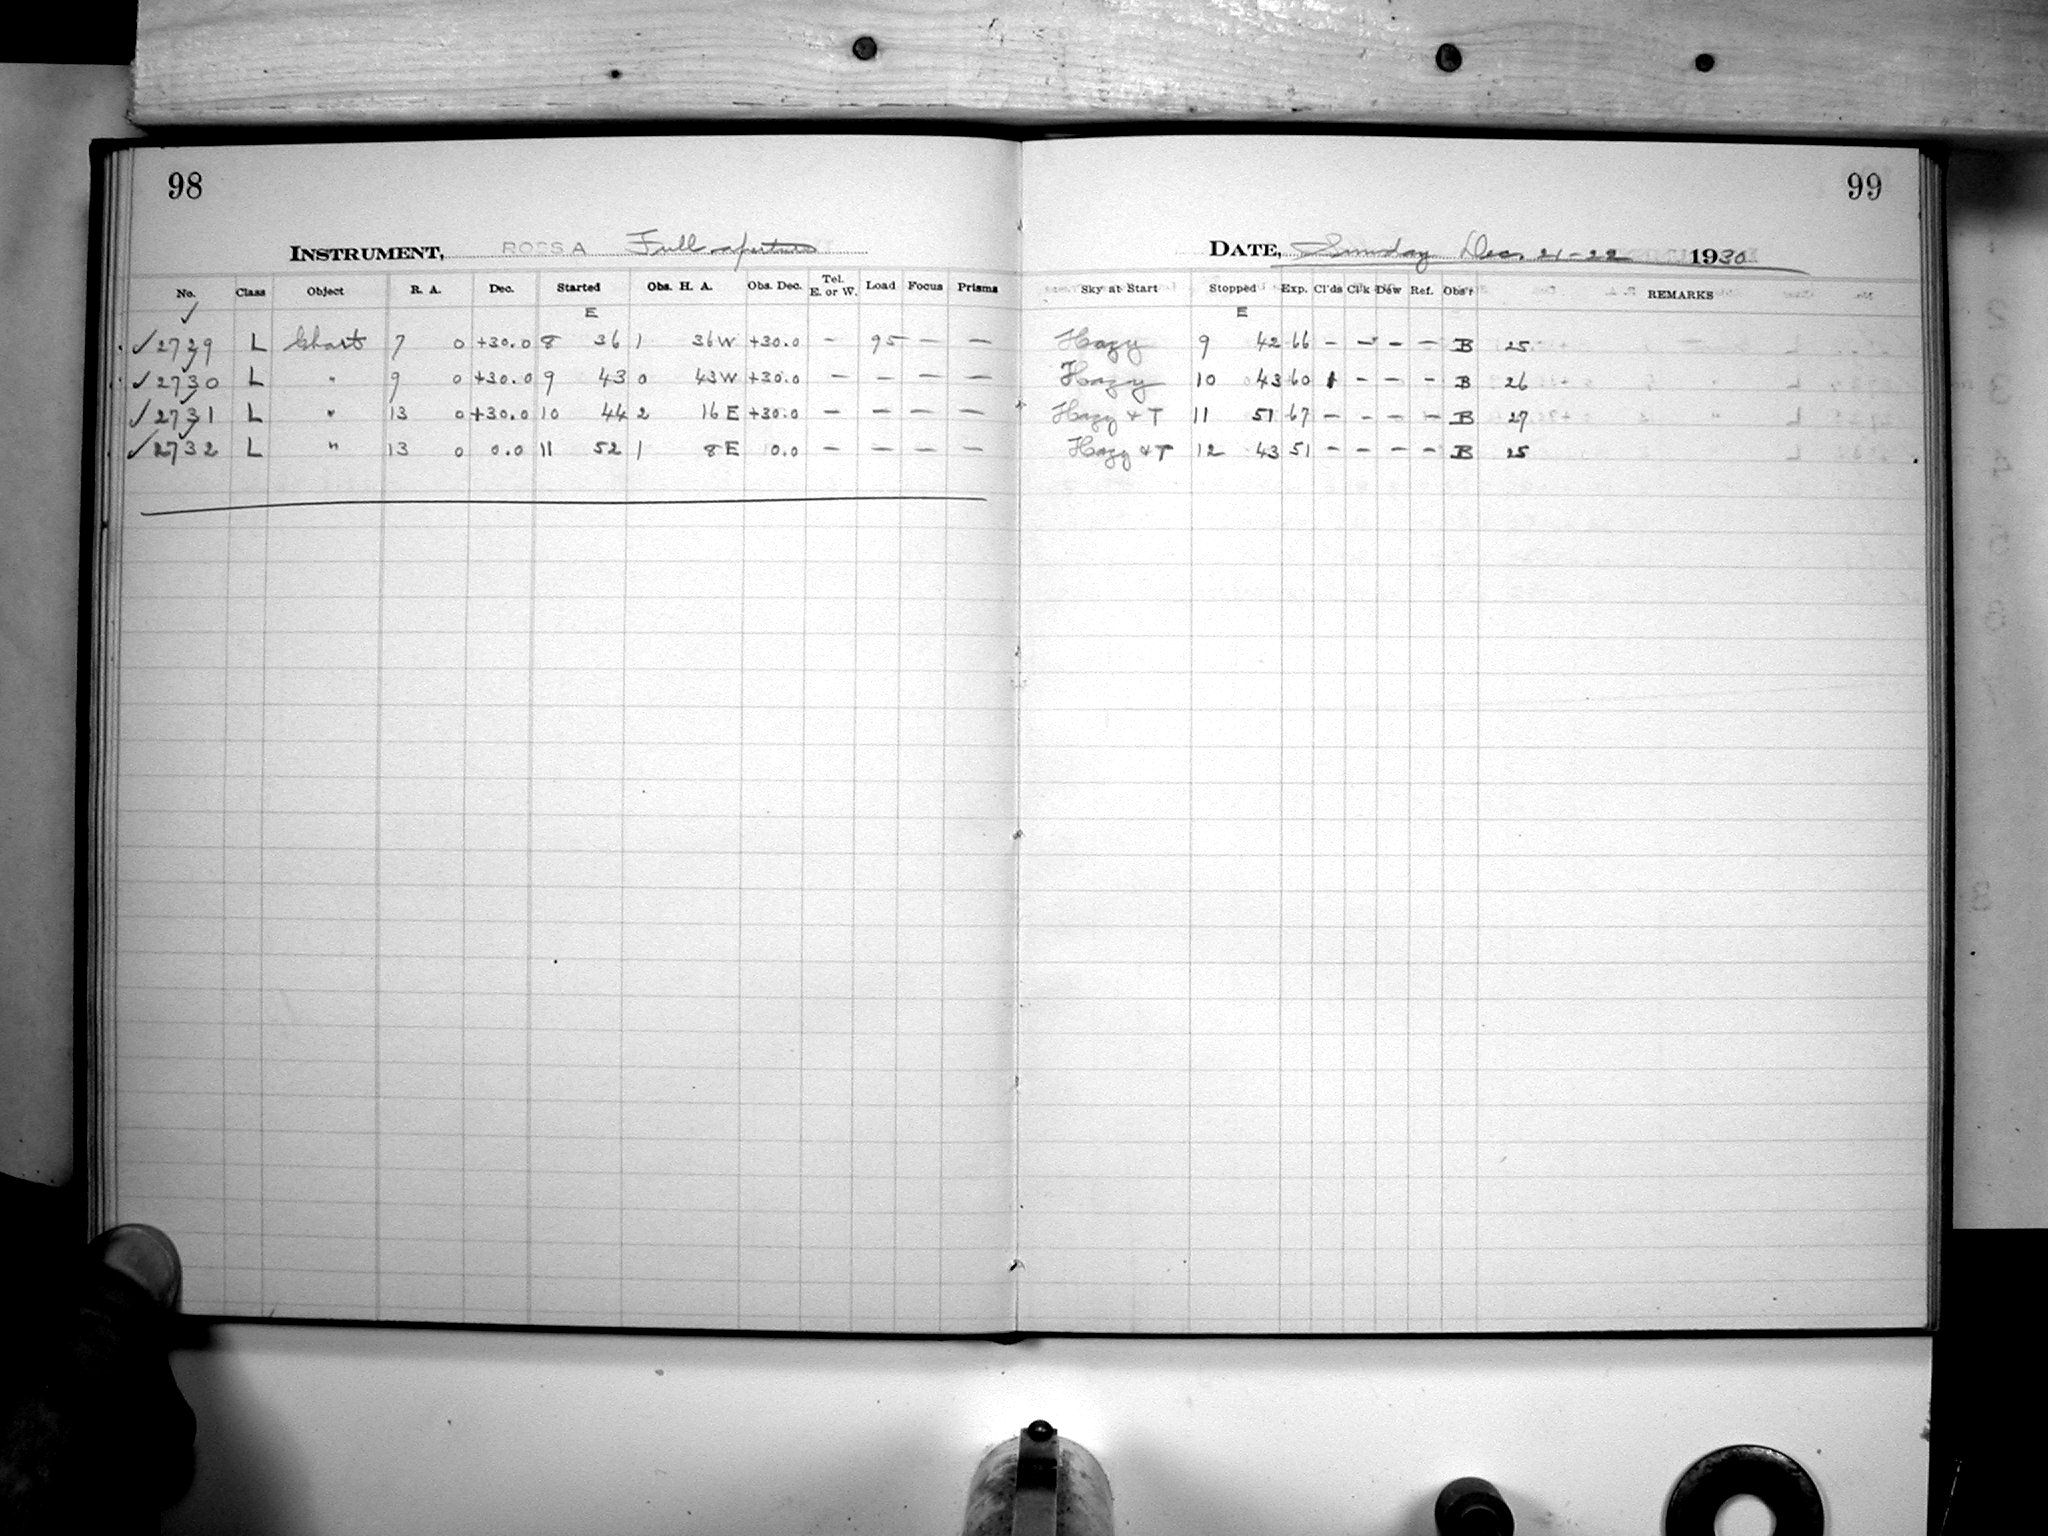 98
INSTRUMENT, ROSS A Full aperture
No. Class Object R. A. Dec. Started Obs. H. A. Obs. Dec. Tel. E. or W. Load Focus Prisms
E
2729 L Chart 7 0 +30.0 8 36 1 36 W +30.0 - 95 - -
2730 L " 9 0 +30.0 9 43 0 43 W +30.0 - - - -
2731 L " 13 0 +30.0 10 44 2 16 E +30.0 - - - -
2732 L " 13 0 0.0 11 52 1 8 E 0.0 - - - -
99
DATE, Sunday Dec. 21-22 1930
Sky at Start Stopped Exp. Cl'ds Cl'k Dew Ref. Obs'r REMARKS
E
Hazy 9 42 66 - - - - B 25
Hazy 10 43 60 1 - - - B 26
Hazy + T 11 51 67 - - - - B 27
Hazy + T 12 43 51 - - - - B 25